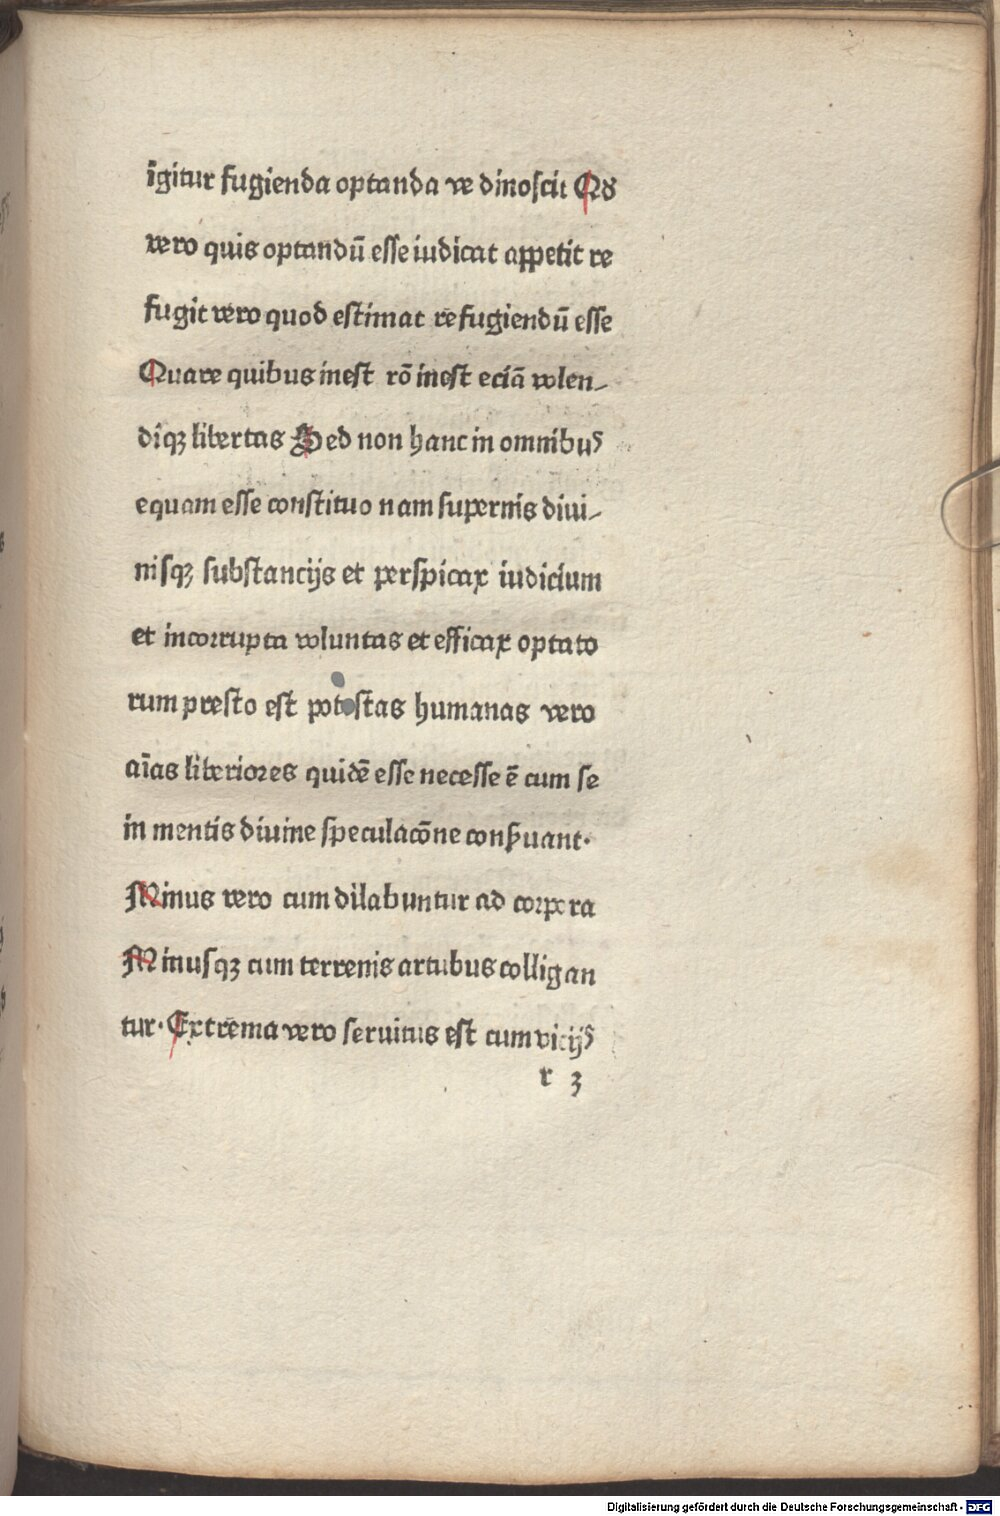 igitur fugienda optanda ve dinoscit Qď
vero quis optandū esse iudicat appetit re
fugit vero quod estimat refugiendū esse
Quare quibus inest rō inest eciā volen-
diqꝫ libertas Sed non hanc in omnibuꝰ
equam esse constituo nam supernis diui-
nisqꝫ substancijs et perspicax iudicium
et incorrupta voluntas et efficax optato
rum presto est potestas humanas vero
aīas liberiores quidē esse necesse ē cum se
in mentis diuine speculacōne conßuant·
Minus vero cum dilabuntur ad corpora
Minusqꝫ cum terrenis artubus colligan
tur· Extrema vero seruitus est cum vicijꝰ
r 3
Digitalisierung gefördert durch die Deutsche Forschungsgemeinschaft - DFG